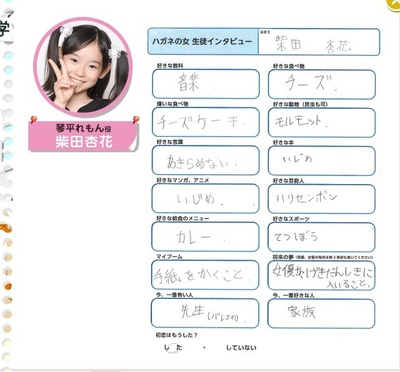 学
ハガネの女 生徒インタビュー
なまえ
柴田 杏花
琴平れもん役
柴田杏花
好きな教科
音楽
好きな食べ物
チーズ
嫌いな食べ物
チーズケーキ
好きな動物(昆虫も可)
モルモット
好きな言葉
あきらめない
好きな本
いじめ
好きなマンガ、アニメ
いじめ
好きな芸能人
ハリセンボン
好きな給食のメニュー
カレー
好きなスポーツ
てつぼう
マイブーム
手紙をかくこと
将来の夢
女優
げきだんしきに
入いること。
今、一番怖い人
先生
今、一番好きな人
家族
初恋はもうした?
した ・ していない